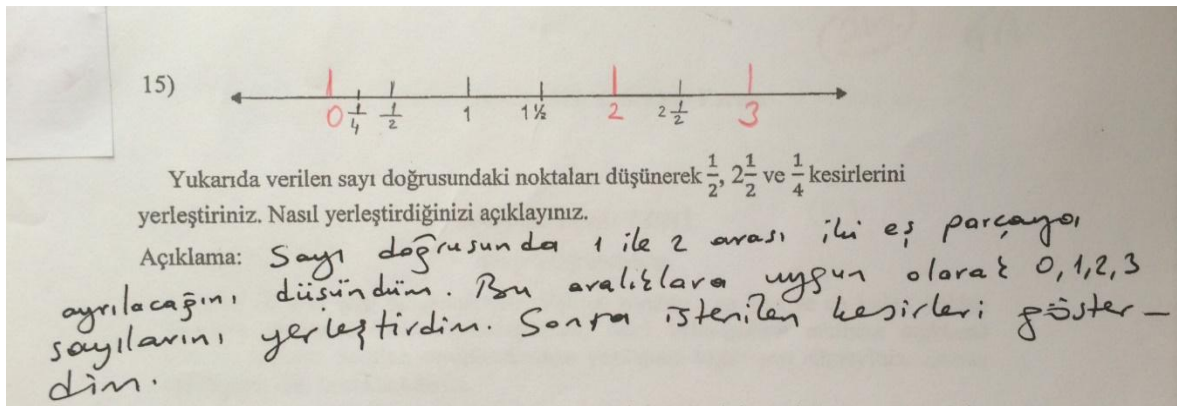 15)
0 1/4 1/2 1 1½ 2 2 1/2 3
Yukarıda verilen sayı doğrusundaki noktaları düşünerek 1/2, 2 1/2 ve 1/4 kesirlerini
yerleştiriniz. Nasıl yerleştirdiğinizi açıklayınız.
Açıklama: Sayı doğrusunda 1 ile 2 arası iki eş parçaya
ayrılacağını düşündüm. Bu aralıklara uygun olarak 0,1,2,3
sayılarını yerleştirdim. Sonra istenilen kesirleri göster-
dim.